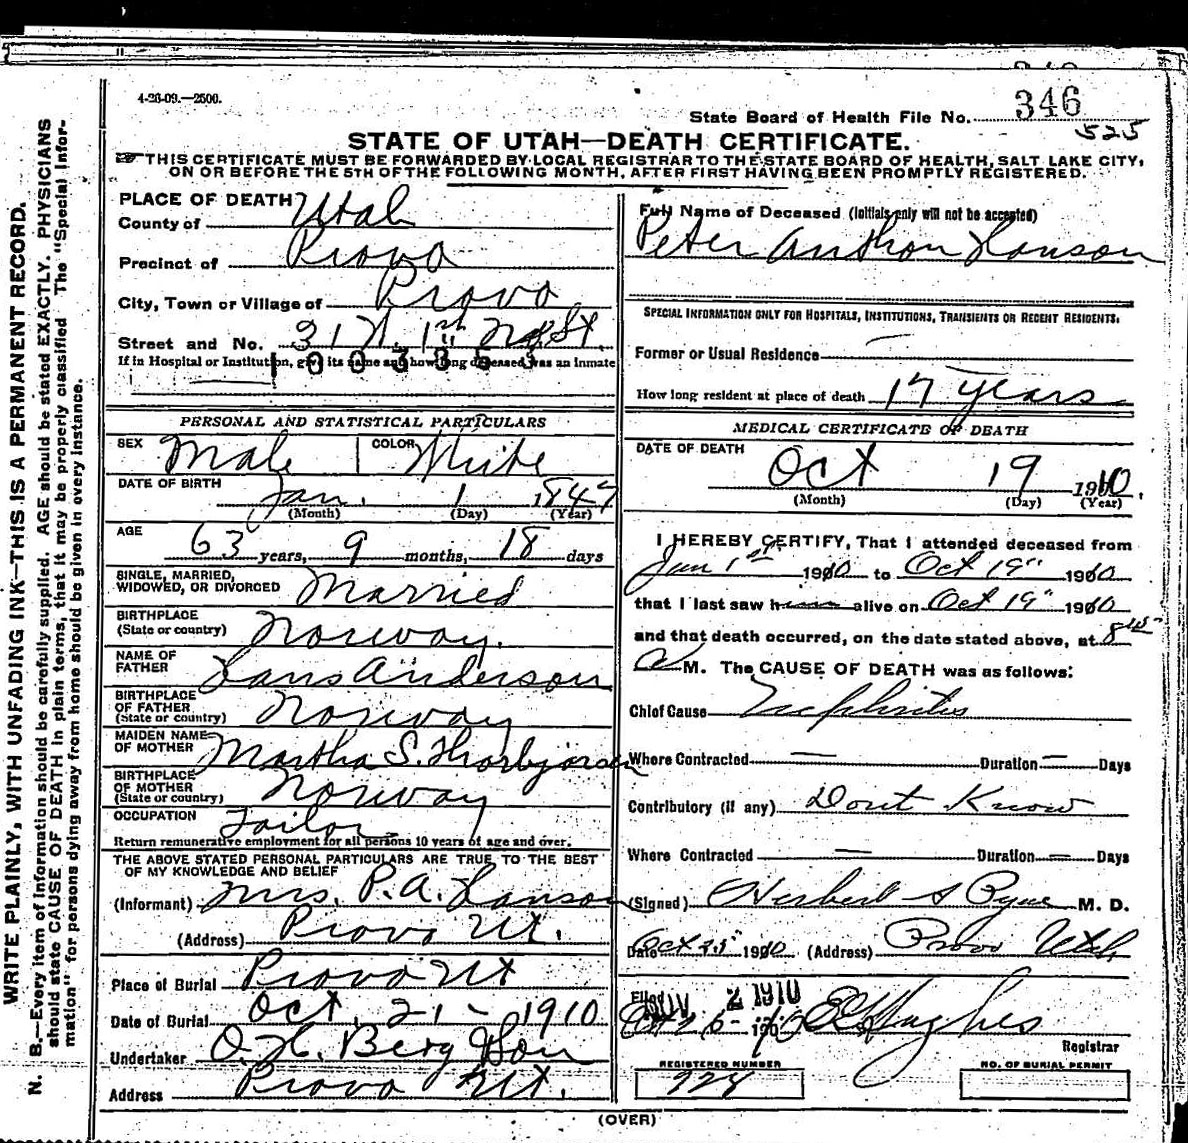 4-26-09.—2500.
State Board of Health File No. 346
525
STATE OF UTAH—DEATH CERTIFICATE.
THIS CERTIFICATE MUST BE FORWARDED BY LOCAL REGISTRAR TO THE STATE BOARD OF HEALTH, SALT LAKE CITY,
ON OR BEFORE THE 5TH OF THE FOLLOWING MONTH, AFTER FIRST HAVING BEEN PROMPTLY REGISTERED.
WRITE PLAINLY, WITH UNFADING INK—THIS IS A PERMANENT RECORD.
N. B.—Every item of information should be carefully supplied. AGE should be stated EXACTLY. PHYSICIANS
should state CAUSE OF DEATH in plain terms, that it may be properly classified. The "Special Infor-
mation" for persons dying away from home should be given in every instance.
PLACE OF DEATH
County of Utah
Precinct of Provo
City, Town or Village of Provo
Street and No. 31 N. 1st St.
If in Hospital or Institution, give its name and how long deceased was an inmate
1003353
PERSONAL AND STATISTICAL PARTICULARS
SEX Male COLOR White
DATE OF BIRTH Jan. 1 1847
(Month) (Day) (Year)
AGE 63 years, 9 months, 18 days
SINGLE, MARRIED,
WIDOWED, OR DIVORCED Married
BIRTHPLACE
(State or country) Norway.
NAME OF
FATHER Hans Anderson
BIRTHPLACE
OF FATHER
(State or country) Norway
MAIDEN NAME
OF MOTHER Martha S. Thorbjorsen
BIRTHPLACE
OF MOTHER
(State or country) Norway
OCCUPATION Tailor
Return remunerative employment for all persons 10 years of age and over.
THE ABOVE STATED PERSONAL PARTICULARS ARE TRUE TO THE BEST
OF MY KNOWLEDGE AND BELIEF
(Informant) Mrs. P. A. Hanson
(Address) Provo Ut.
Place of Burial Provo Ut
Date of Burial Oct. 21 - 1910
Undertaker O. H. Berg & Son
Address Provo Ut.
Full Name of Deceased (Initials only will not be accepted)
Peter Anthon Hanson
SPECIAL INFORMATION ONLY FOR HOSPITALS, INSTITUTIONS, TRANSIENTS OR RECENT RESIDENTS.
Former or Usual Residence —
How long resident at place of death 17 years
MEDICAL CERTIFICATE OF DEATH
DATE OF DEATH Oct 19 1910.
(Month) (Day) (Year)
I HEREBY CERTIFY, That I attended deceased from
Jan 1st 1910 to Oct 19" 1910
that I last saw him alive on Oct 19" 1910
and that death occurred, on the date stated above, at 8
A M. The CAUSE OF DEATH was as follows:
Chief Cause Nephritis
Where Contracted — Duration — Days
Contributory (if any) Dont Know
Where Contracted — Duration — Days
(Signed) Herbert S Pyne M. D.
Date Oct 25" 1910 (Address) Provo Utah
Filed NOV 2 1910
Oct 26 - 1910 Hughes
Registrar
REGISTERED NUMBER
924
NO. OF BURIAL PERMIT
(OVER)